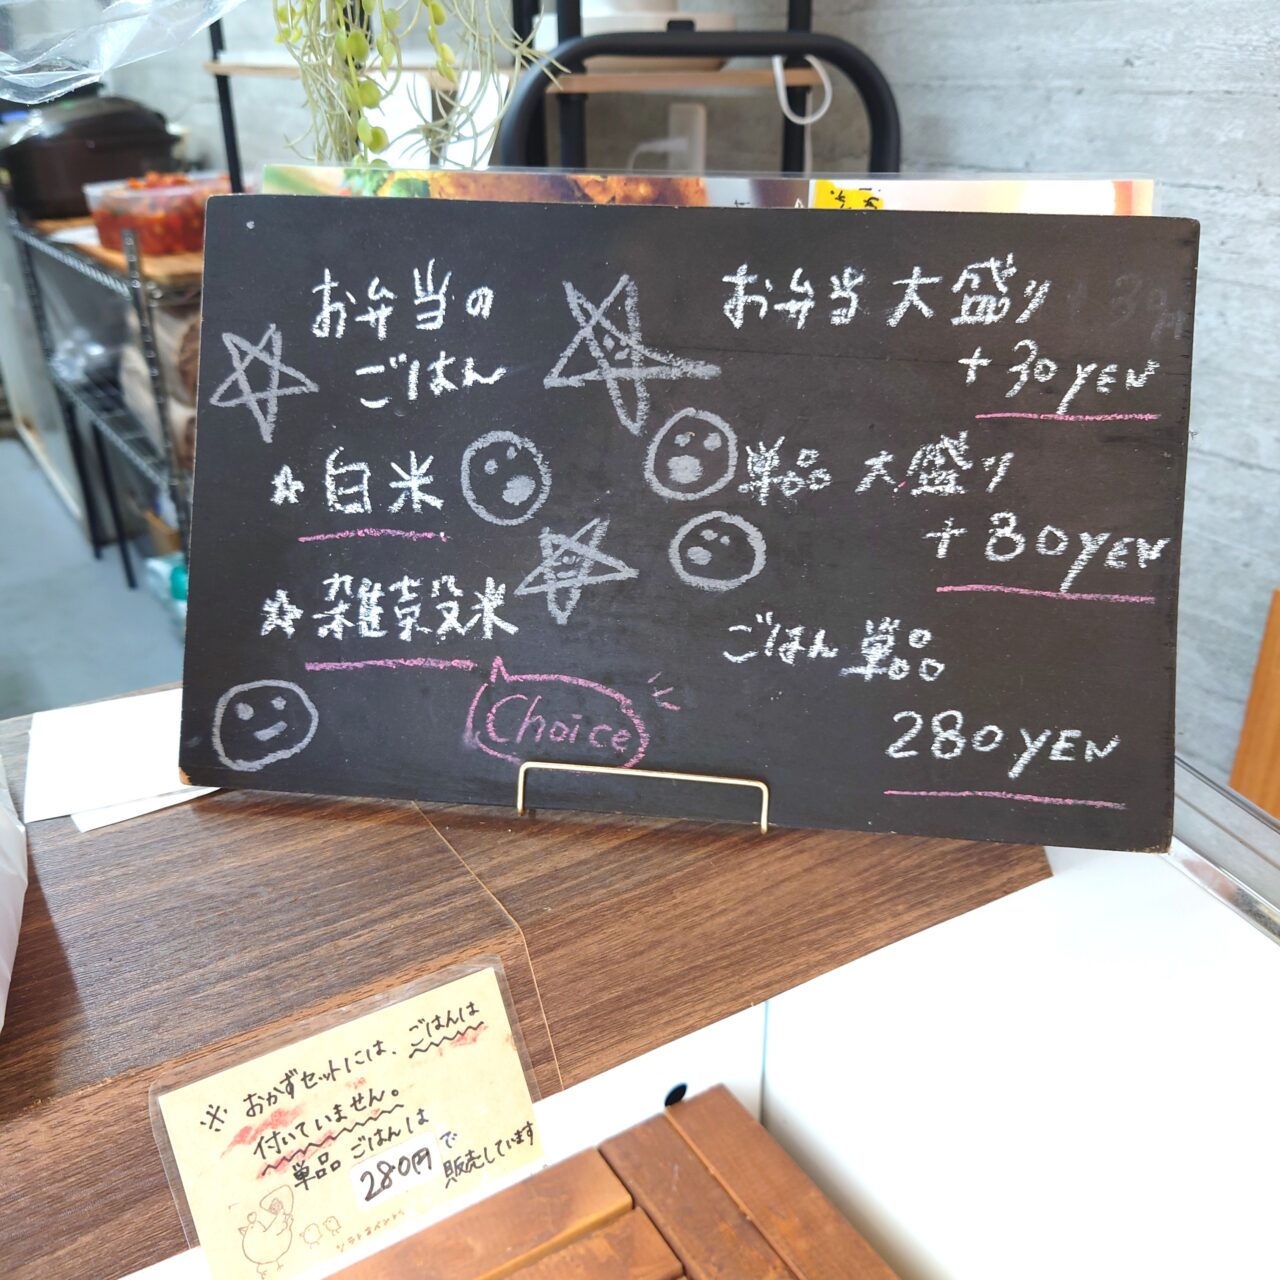 お弁当の
ごはん
☆白米
☆雑穀米
Choice
お弁当大盛り
+30YEN
単品大盛り
+80YEN
ごはん単品
280YEN
※おかずセットには、ごはんは
付いていません。
単品ごはんは
280円で
販売しています